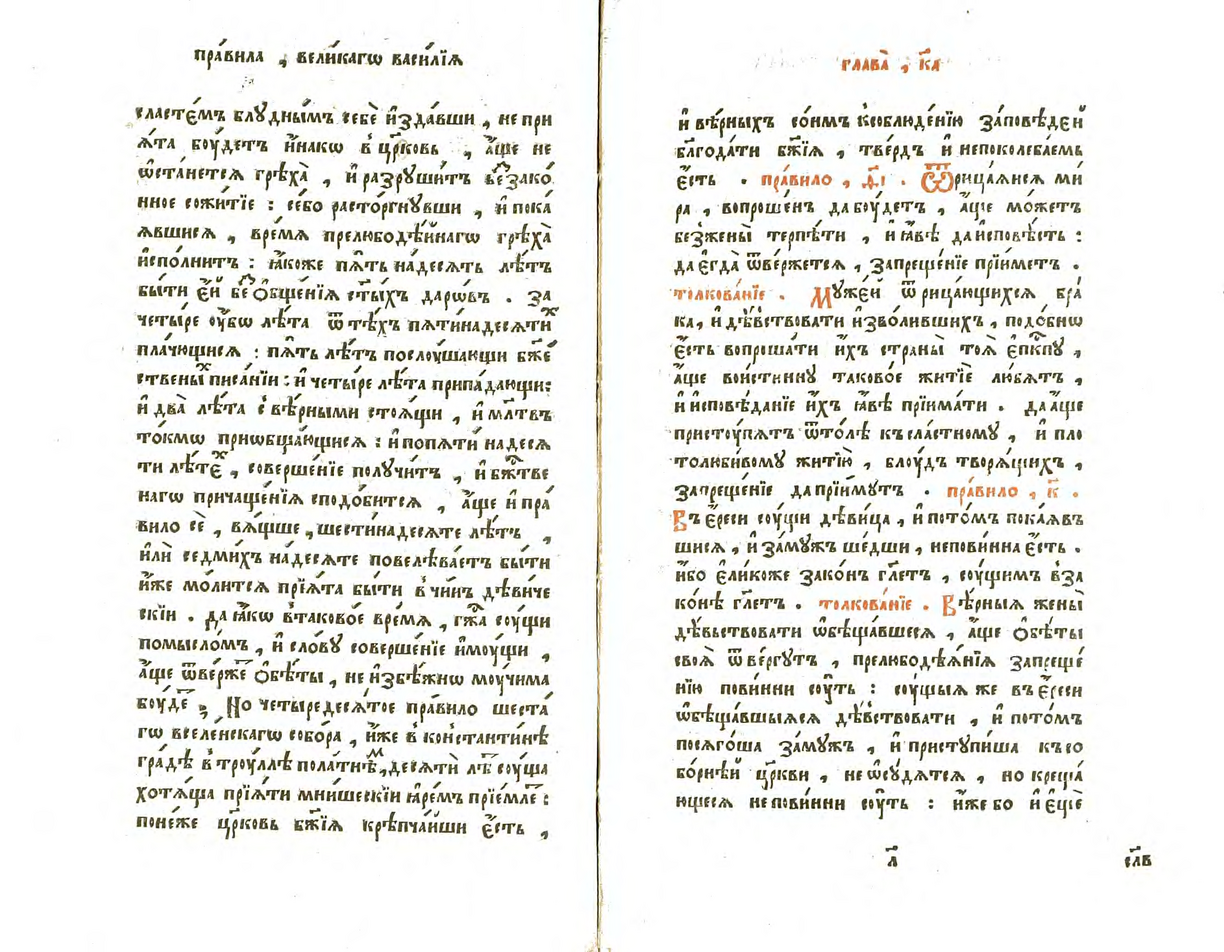 пра́вила , вели́кагѡ васи́лїѧ
сласте́мъ блу́дны́мъ себѐ и҆зда́вши , не при
ѧ́та бꙋ́детъ и҆́накѡ в҆ цр҃ковь , а҆́ще не
ѡ҆ста́нетсѧ грѣха̀ , и҆ разрꙋши́тъ беззако́
нное сожи́тїе : се́бо расто́ргнꙋвши , и҆ пока́
ѧ́вшисѧ , вре́мѧ прелюбодѣ́йнагѡ грѣха̀
и҆спо́лнитъ : ꙗ҆́коже пѧ́ть на́десѧть лѣ́тъ
бы́ти є҆́й без̾ ѻ҆бще́нїѧ ст҃ы́хъ даро́въ . за
четы́ре ᲂу҆́бѡ лѣ́та ѿ тѣ́хъ пѧтина́десѧтих
пла́чющисѧ : пѧ́ть лѣ́тъ послꙋ́шающи бж҃е
ственых писа́нїи : и҆ четы́ре лѣ́та припа́дающи:
и҆ два̀ лѣ́та с҆ вѣ́рными стоѧ́щи , и҆ мл҃твъ
то́кмѡ приѡбща́ющисѧ : и҆ попѧ́ти на́десѧ
ти лѣ́техъ , соверше́нїе полу́читъ , и҆ бж҃тве
нагѡ причаще́нїѧ сподо́битсѧ , а҆́ще и҆ пра́
вило сѐ , вѧ́щше , шести́на́десѧте лѣ́тъ ,
и҆лѝ седми́хъ на́десѧте повелѣва́етъ бы́ти
и҆́же мо́литсѧ прїѧ́та бы́ти в҆ чи́нъ дѣ́виче
скїи . да ꙗ҆́кѡ в҆таково́е вре́мѧ , гж҃а сꙋ́щи
помысло́мъ , и҆ сло́вꙋ соверше́нїе и҆мꙋ́щи ,
а҆́ще ѿве́рже ѻ҆бѣ́ты , не и҆збѣ́жнѡ мꙋ́чима
бꙋ́де . Но четыредесѧ́тое пра́вило шеста́
гѡ вселе́нскагѡ собо́ра , и҆́же в҆ констѧнти́нѣ
гра́дѣ в҆ трꙋ́ллѣ пола́тнѣм , десѧтѝ лѣ̑ сꙋ́ща
хотѧ́ща прїѧ́ти мни́шескїи ꙗ҆ре́мъ прїе́мле :
поне́же цр҃ковь бж҃їѧ крѣпча́йши є҆́сть ,
глава̀ , к҃а
и҆ вѣ́рныхъ со́нмъ к҆соблюде́нїю за́повѣдей
бл҃года́ти бж҃їѧ , тве́рдъ и҆ непоколеба́емь
є҆́сть . пра́вило , ѳ҃і . Ѿрица́ѧисѧ ми́
ра , вопроше́нъ да бꙋ́детъ , а҆́ще мо́жетъ
безжены̀ терпѣ́ти , и҆ ꙗ҆́вѣ да и҆сповѣ́сть :
да є҆гда̀ ѿве́ржетсѧ , запреще́нїе прїи́метъ .
толкова́нїе . Мꙋже́й ѿ рица́ющихсѧ бра́
ка , и҆ дѣ́вствовати и҆зво́лившихъ , подо́бнѡ
є҆́сть вопроша́ти и҆́хъ страны̀ тоѧ̀ є҆пк҃пꙋ ,
а҆́ще вои́стиннꙋ таково́е житїѐ лю́бѧтъ ,
и҆ и҆сповѣ́данїе и҆́хъ ꙗ҆́вѣ прїима́ти . да а҆́ще
пристꙋ́пѧтъ ѿто́лѣ къ сла́стномꙋ , и҆ пло
толюби́вомꙋ житїю̀ , блꙋ́дъ творѧ́щихъ ,
запреще́нїе да прїи́мꙋтъ . пра́вило , к҃ .
Въ є҆́реси сꙋ́щи дѣви́ца , и҆ пото́мъ пока́ѧвъ
шисѧ , и҆ за́мꙋжъ ше́дши , непови́нна є҆́сть .
и҆́бо є҆ли́коже зако́нъ гл҃етъ , сꙋ́щимъ в҆за
ко́нѣ гл҃етъ . толкова́нїе . Вѣ́рныѧ жены̀
дѣ́вьствовати ѡ҆бѣща́вшесѧ , а҆́ще ѻ҆бѣ́ты
своѧ̀ ѿве́ргꙋтъ , прелюбодѣѧ́нїѧ запреще́
нїю пови́нни сꙋ́ть : сꙋ́щыѧ же въ є҆́реси
ѡ҆бѣща́вшыѧсѧ дѣ́вствовати , и҆ пото́мъ
посѧго́ша за́мꙋжъ , и҆ пристꙋпи́ша къ со
бо́рнѣй цр҃кви , не ѡ҆сꙋ́дѧтсѧ , но креща́
ющесѧ непови́нни сꙋ́ть : и҆́же бо и҆ є҆щѐ
л҃
сл҃в